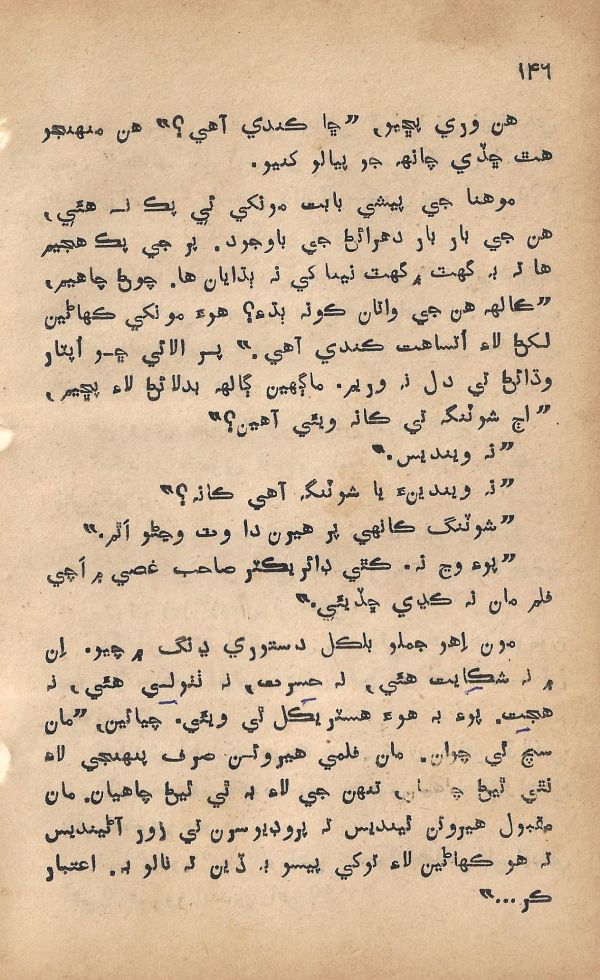 ۱۴۶
هن وري پڇيو، ”ڇا ڪندي آهي؟“ هن منهنجو
هٿ ڇڏي چانهه جو پيالو کنيو.
موهنا جي پيشي بابت مونکي ئي پڪ نه هئي،
هن جي بار بار دهرائڻ جي باوجود. پر جي پڪ هجيم
ها ته به گهٽ ۾ گهٽ نيتا کي نه ٻڌايان ها. چوڻ چاهيم،
”ڪالهه هن جي واتان ڪونه ٻڌءِ؟ هوءَ مونکي ڪهاڻين
لکڻ لاءِ اُتساهت ڪندي آهي.“ پر الائي ڇو اُپٽار
وڌائڻ تي دل نه وريم. ماڳهين ڳالهه بدلائڻ لاءِ پڇيم،
”اڄ شوٽنگ تي ڪانه ويئي آهين؟“
”نه وينديس.“
”نه ويندينءَ يا شوٽنگ آهي ڪانه؟“
”شوٽنگ ڪانهي پر هيرن دا وٽ وڃڻو اَٿم.“
”پوءِ وڃ نه. ڪٿي ڊائريڪٽر صاحب غصي ۾ اَچي
فلم مان نه ڪڍي ڇڏيئي.“
مون اِهو جملو بلڪل دستوري ڍنگ ۾ چيو. اِن
۾ نه شڪايت هئي، نه حسرت، نه ٺٺولي هئي، نه
هجت. پوءِ به هوءَ هسٽريڪل ٿي ويئي. چيائين، ”مان
سچ ٿي چوان. مان فلمي هيروئن صرف پنهنجي لاءِ
نٿي ٿيڻ چاهيان، تنهن جي لاءِ به ٿي ٿيڻ چاهيان. مان
مقبول هيروئن ٿينديس ته پروڊيوسرن تي زور آڻينديس
ته هو ڪهاڻين لاءِ توکي پيسو به ڏين ته نالو به. اعتبار
ڪر...“